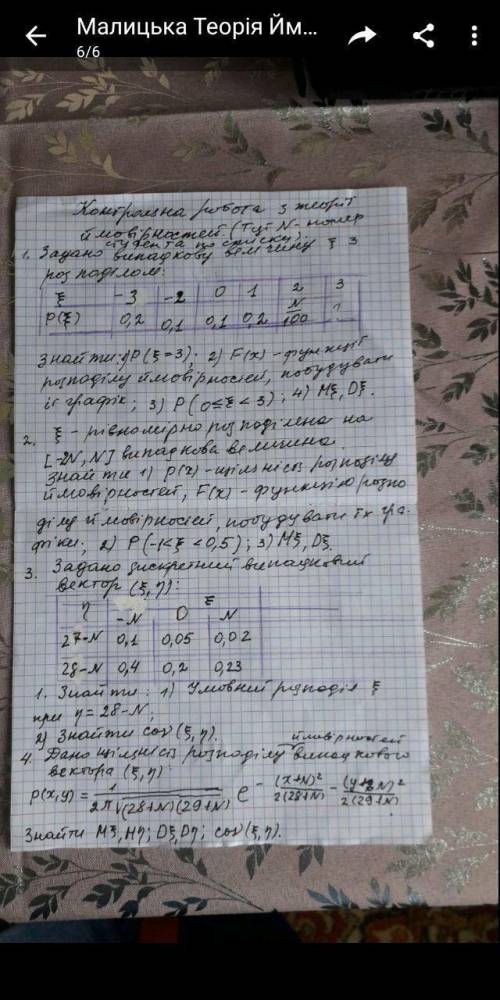 Малицька Теорія Йм...
6/6
Контрольна робота з теорії
ймовірностей (тут N - номер
студента по списку).
1. Задано випадкову величину ξ з
розподілом:
ξ -3 -2 0 1 2 3
P(ξ) 0,2 0,1 0,1 0,2 N/100 ?
Знайти: 1) P(ξ=3); 2) F(x) - функції
розподілу ймовірностей, побудувати
її графік; 3) P(0≤ξ<3); 4) Mξ, Dξ.
2. ξ - рівномірно розподілена на
[-2N, N] випадкова величина.
Знайти 1) p(x) - щільність розподілу
ймовірностей, F(x) - функцію розпо
ділу ймовірностей, побудувати їх гра-
фіки; 2) P(-1<ξ<0,5); 3) Mξ, Dξ.
3. Задано дискретний випадковий
вектор (ξ, η):
η ξ
-N 0 N
27-N 0,1 0,05 0,02
28-N 0,4 0,2 0,23
1. Знайти: 1) Умовний розподіл ξ
при η = 28-N;
2) Знайти cov(ξ, η).
ймовірностей
4. Дано щільність розподілу випадкового
вектора (ξ, η):
p(x,y) = 1/(2π√((28+N)(29+N))) e^(-(x+N)²/(2(28+N)) - (y+2N)²/(2(29+N)))
Знайти Mξ, Mη; Dξ, Dη; cov(ξ, η).